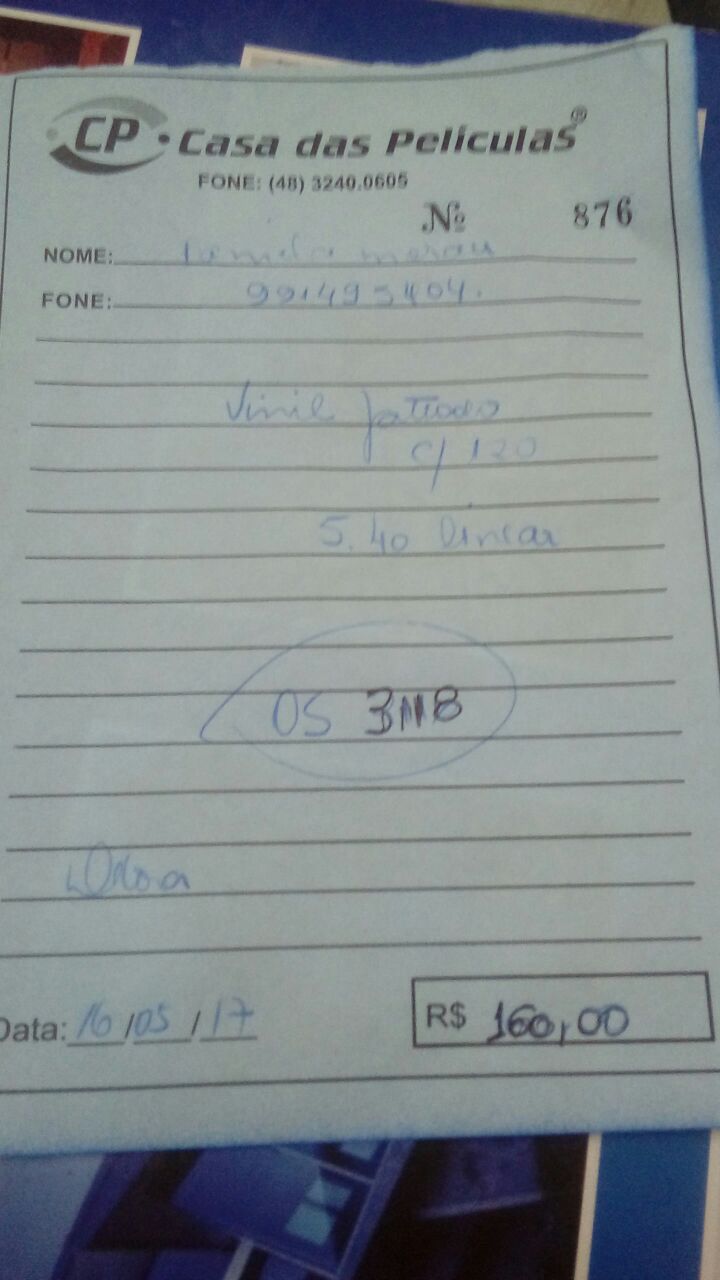 CP • Casa das Películas®
FONE: (48) 3240.0605
Nº 876
NOME:
FONE: 991495404.
Vinil Jateado
c/ 120
5.40 linear
OS 3118
Data: 16/05/17
R$ 160,00